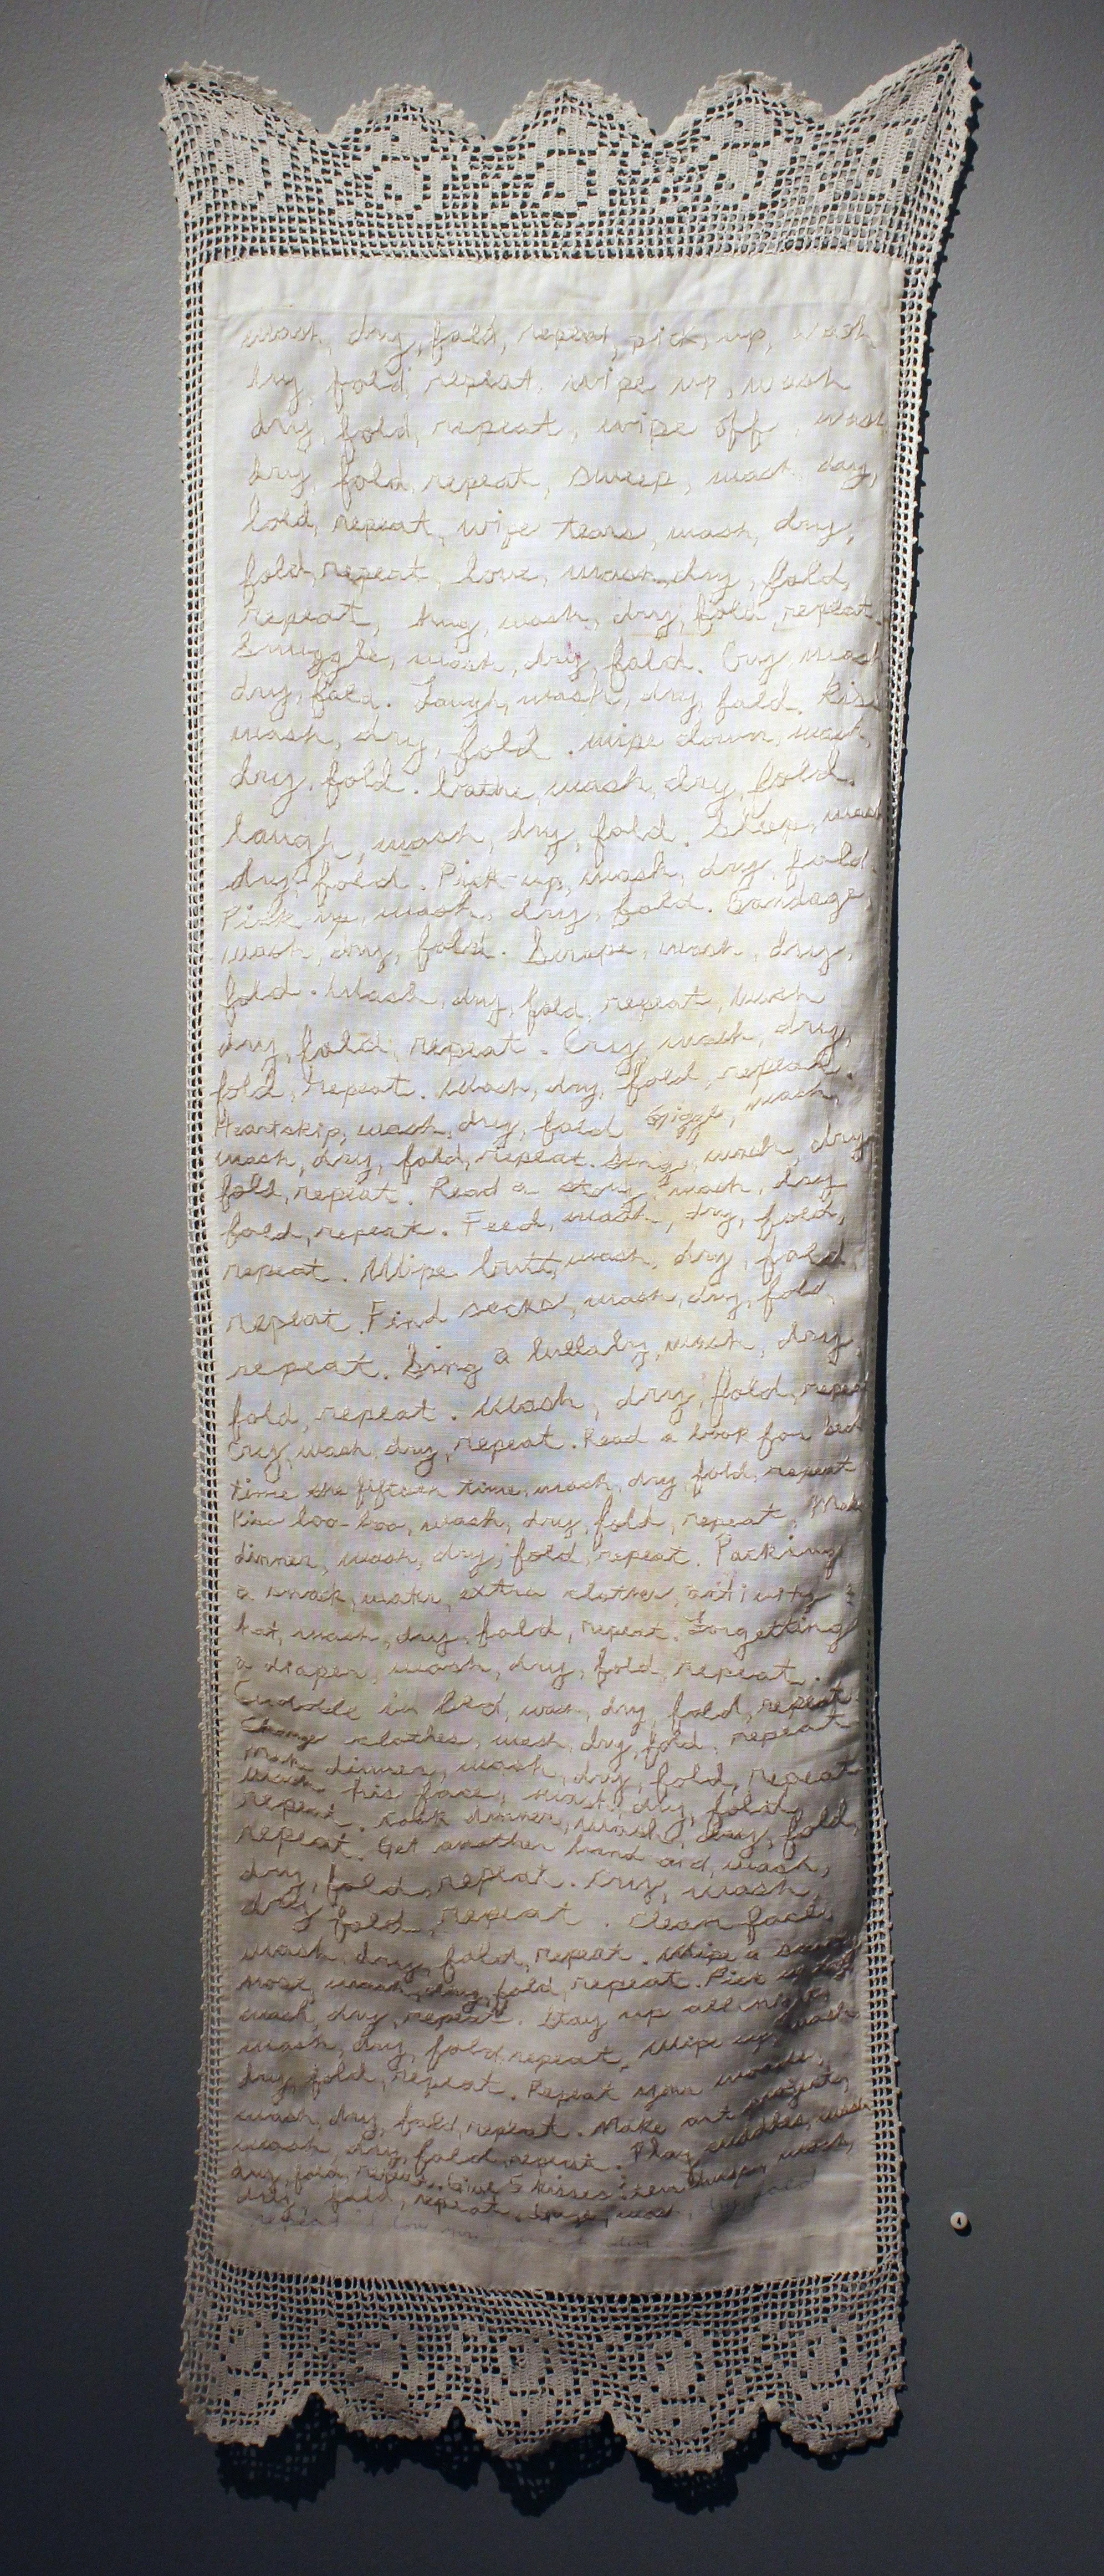 wash, dry, fold, repeat, pick, up, wash
dry, fold, repeat, wipe up, wash
dry, fold, repeat, wipe off, wash
dry, fold, repeat, sweep, wash, dry,
fold, repeat, wipe tears, wash, dry,
fold, repeat, love, wash, dry, fold,
repeat, hug, wash, dry, fold, repeat.
Snuggle, wash, dry, fold. Cry, wash
dry, fold. Laugh, wash, dry, fold. Kiss
wash, dry, fold. wipe down, wash,
dry, fold. bathe, wash, dry, fold.
laugh, wash, dry, fold. Sleep, wash
dry, fold. Pick-up, wash, dry, fold.
Pick up, wash, dry, fold. Bandage,
wash, dry, fold. Scrape, wash, dry,
fold. Wash, dry, fold, repeat, wash
dry, fold, repeat. Cry wash, dry,
fold, repeat. Wash, dry, fold, repeat.
Heartskip, wash, dry, fold Giggle, wash,
wash, dry, fold, repeat. Sing, wash, dry
fold, repeat. Read a story, wash, dry
fold, repeat. Feed, wash, dry, fold,
repeat. Wipe butt, wash, dry, fold
repeat. Find socks, wash, dry, fold,
repeat. Sing a lullaby, wash, dry,
fold, repeat. Wash, dry, fold, repeat
Cry, wash, dry, repeat. Read a book for bed
time the fifteen time, wash, dry, fold, repeat
Kiss boo-boo, wash, dry, fold, repeat. Make
dinner, wash, dry, fold, repeat. Packing
a snack, water, extra clothes, activity &
hat, wash, dry, fold, repeat. Forgetting
a diaper, wash, dry, fold, repeat.
Cuddle in bed, wash, dry, fold, repeat.
Change clothes, wash, dry, fold, repeat
Make dinner, wash, dry, fold, repeat
Wash his face, wash, dry, fold,
repeat. cook dinner, wash, dry, fold,
repeat. Get another band aid, wash,
dry, fold, repeat. Cry, wash,
dry, fold, repeat. Clean face,
wash, dry, fold, repeat. Wipe a snotty
nose, wash, dry, fold, repeat. Pick up
wash, dry, repeat. Stay up all night,
wash, dry, fold, repeat. Wipe up, wash
dry, fold, repeat. Repeat your words,
wash, dry, fold, repeat. Make art projects,
wash, dry, fold, repeat. Play puddles, wash
dry, fold, repeat. Give 5 kisses wash,
dry, fold, repeat. wash, dry, fold
repeat